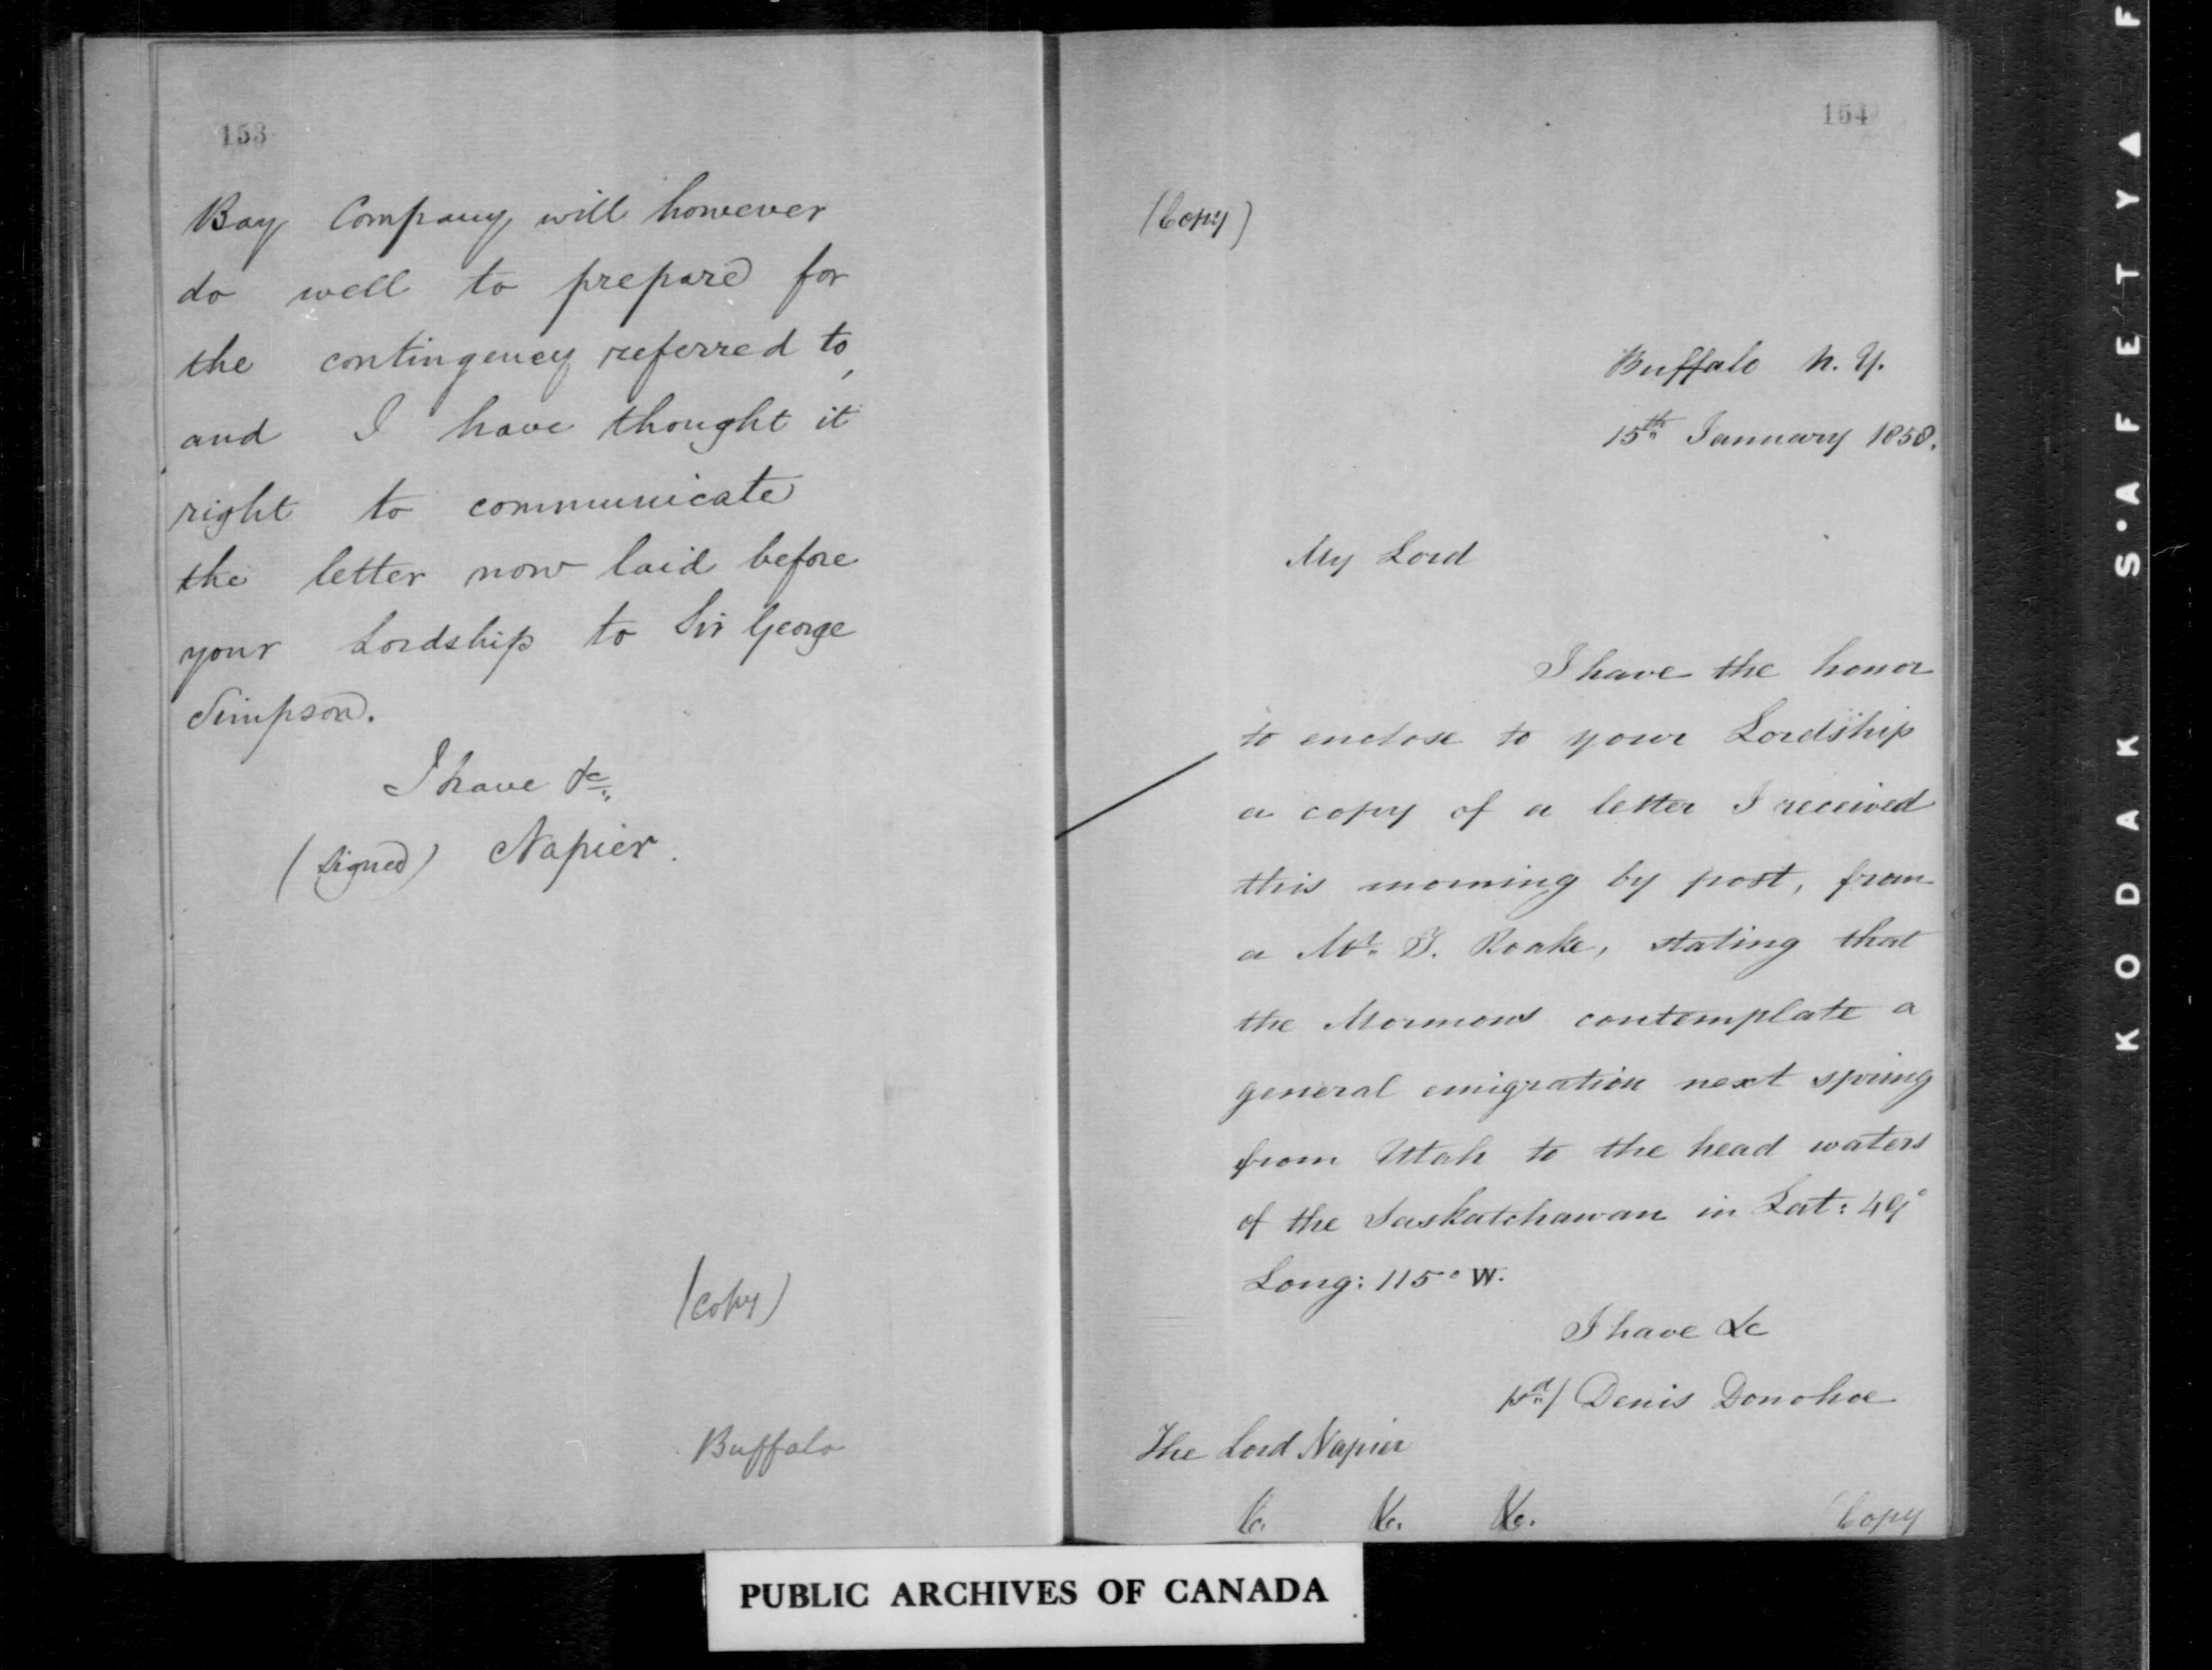 153
Bay Company will however
do well to prepare for
the contingency referred to,
and I have thought it
right to communicate
the letter now laid before
your Lordship to Sir George
Simpson.
I have &c.
(signed) Napier.
(copy)
Buffalo
154
(Copy)
Buffalo N. Y.
15th January 1858.
My Lord
I have the honor
to enclose to your Lordship
a copy of a letter I received
this morning by post, from
a Mr. Roake, stating that
the Mormons contemplate a
general emigration next spring
from Utah to the head waters
of the Saskatchawan in Lat: 49°
Long: 115° W.
I have &c
Denis Donohoe
The Lord Napier
&c. &c. &c.
Copy
PUBLIC ARCHIVES OF CANADA
KODAK S'AFETY▲F